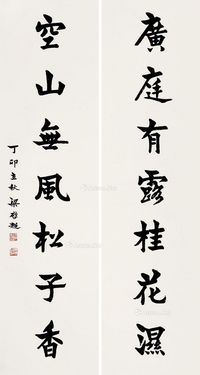 廣庭有露桂花濕
空山無風松子香
丁卯立秋 梁啟超